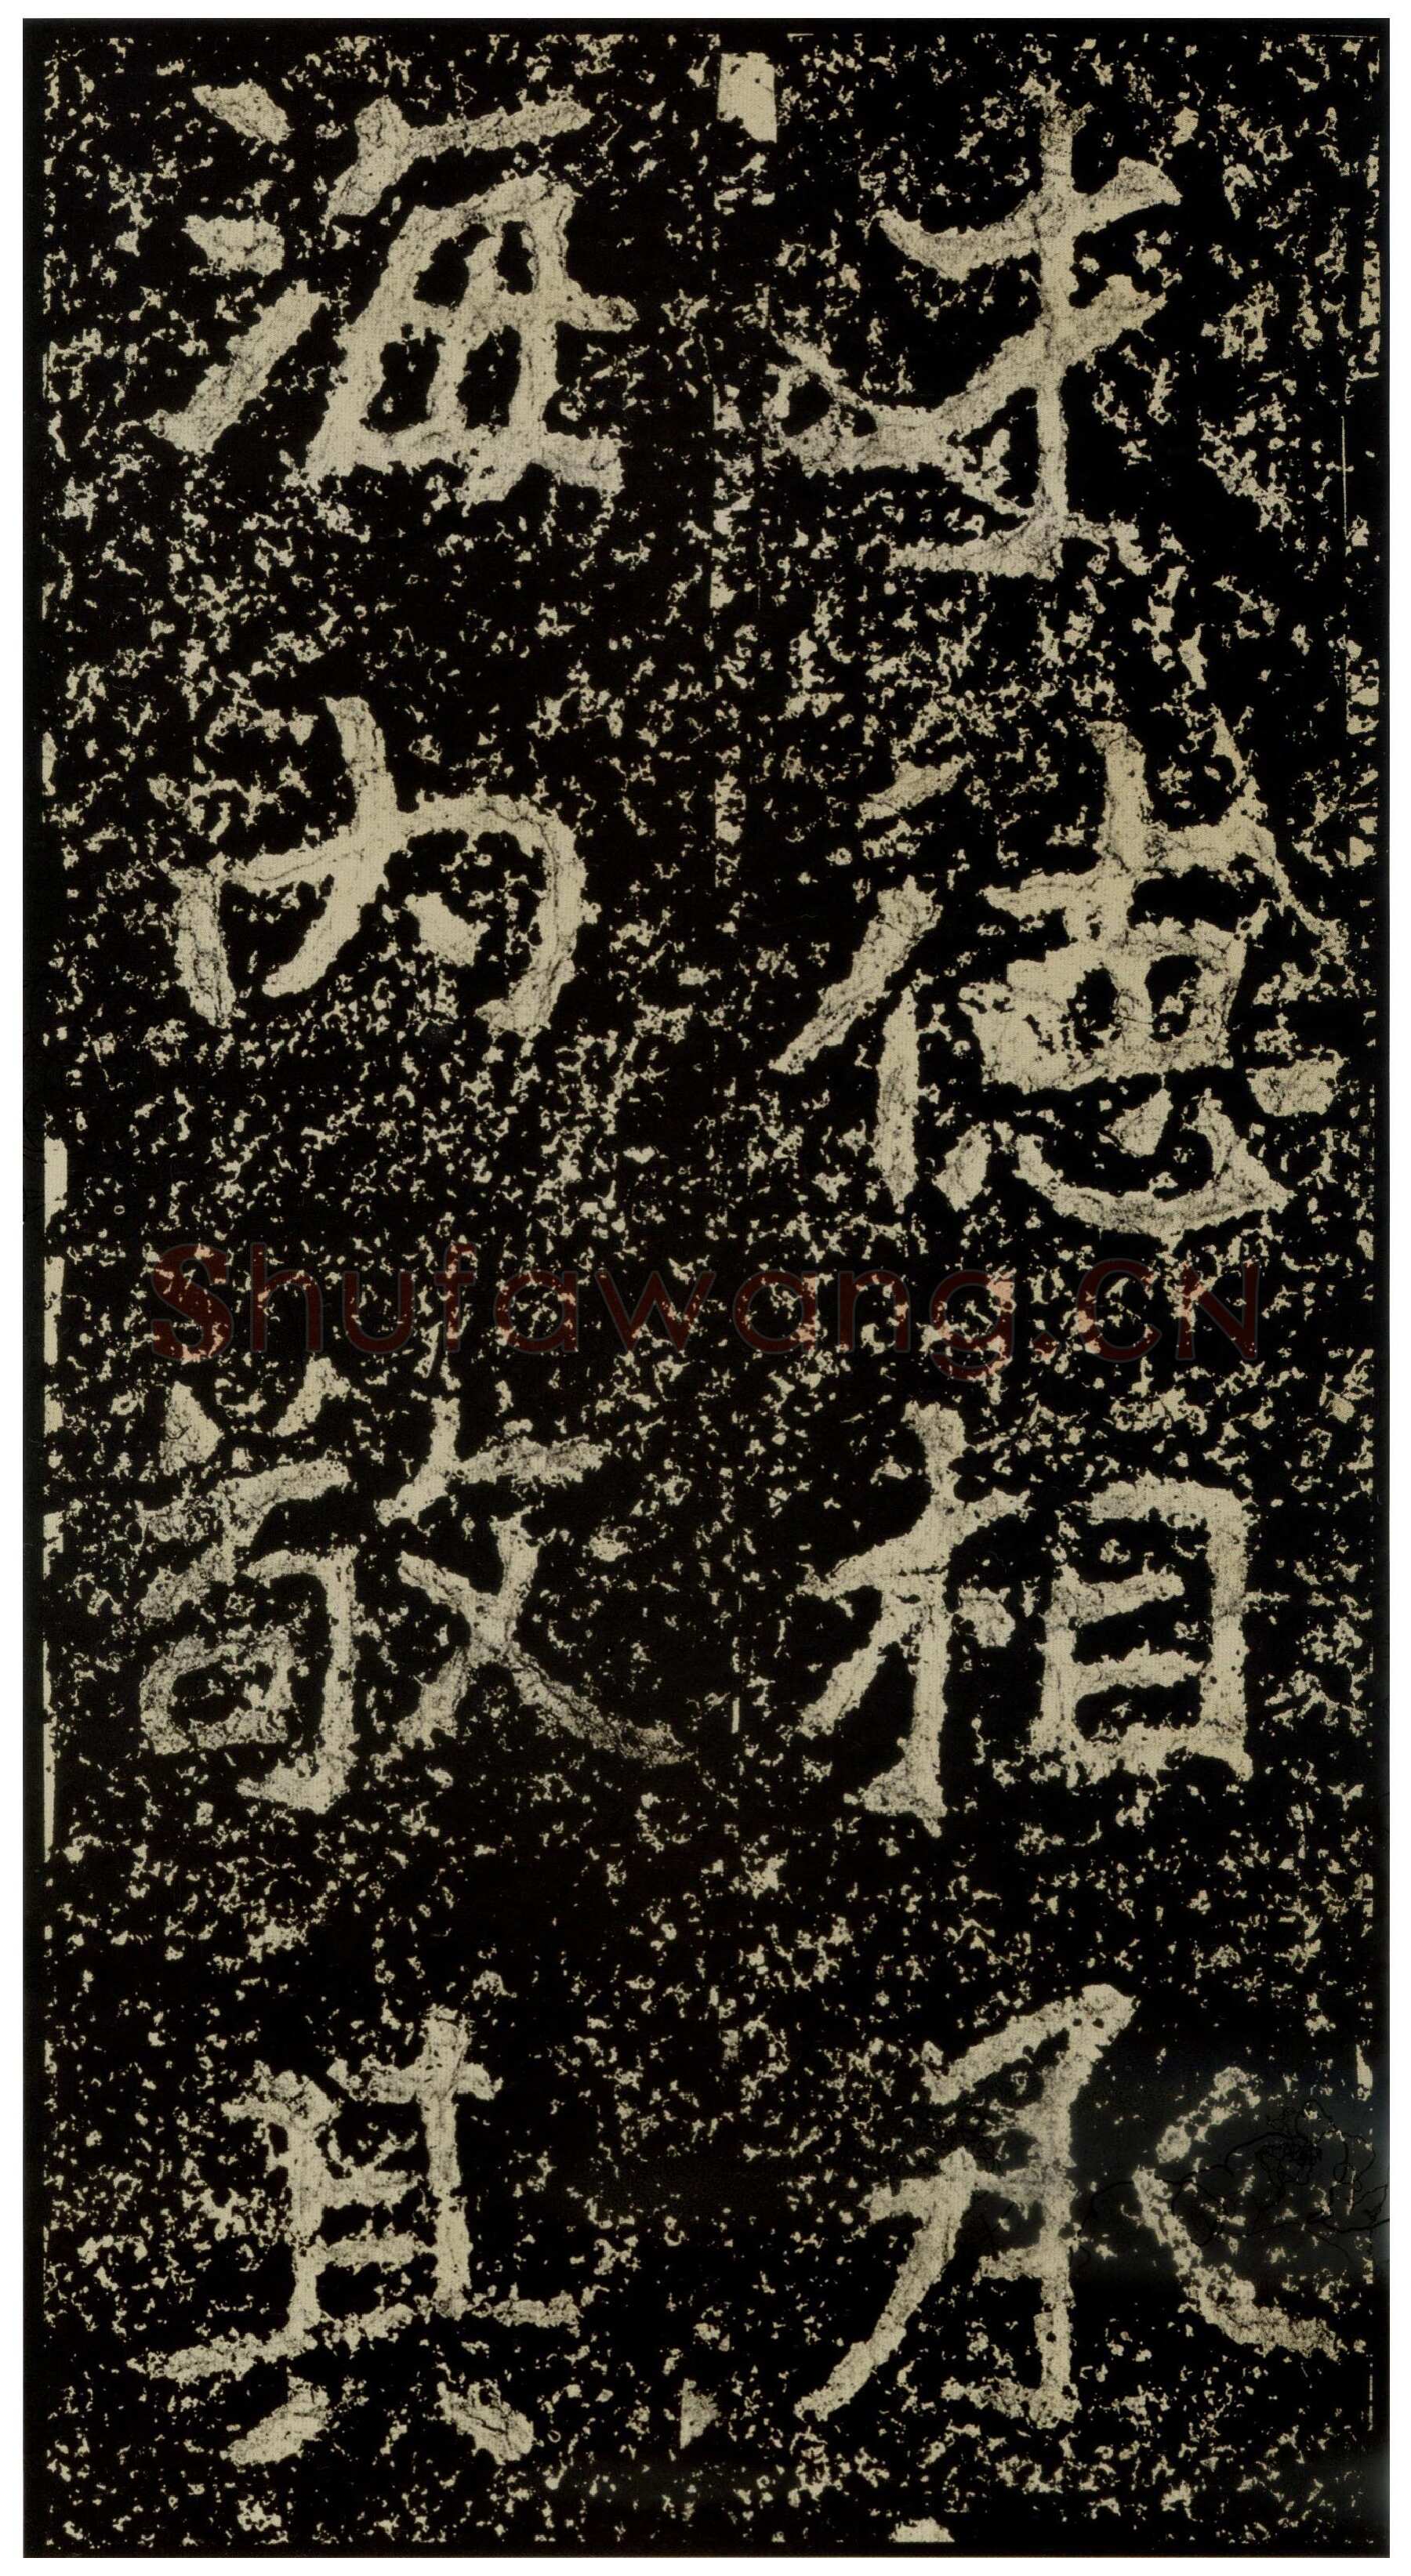 才德相承
海内敬其
Shufawang.CN